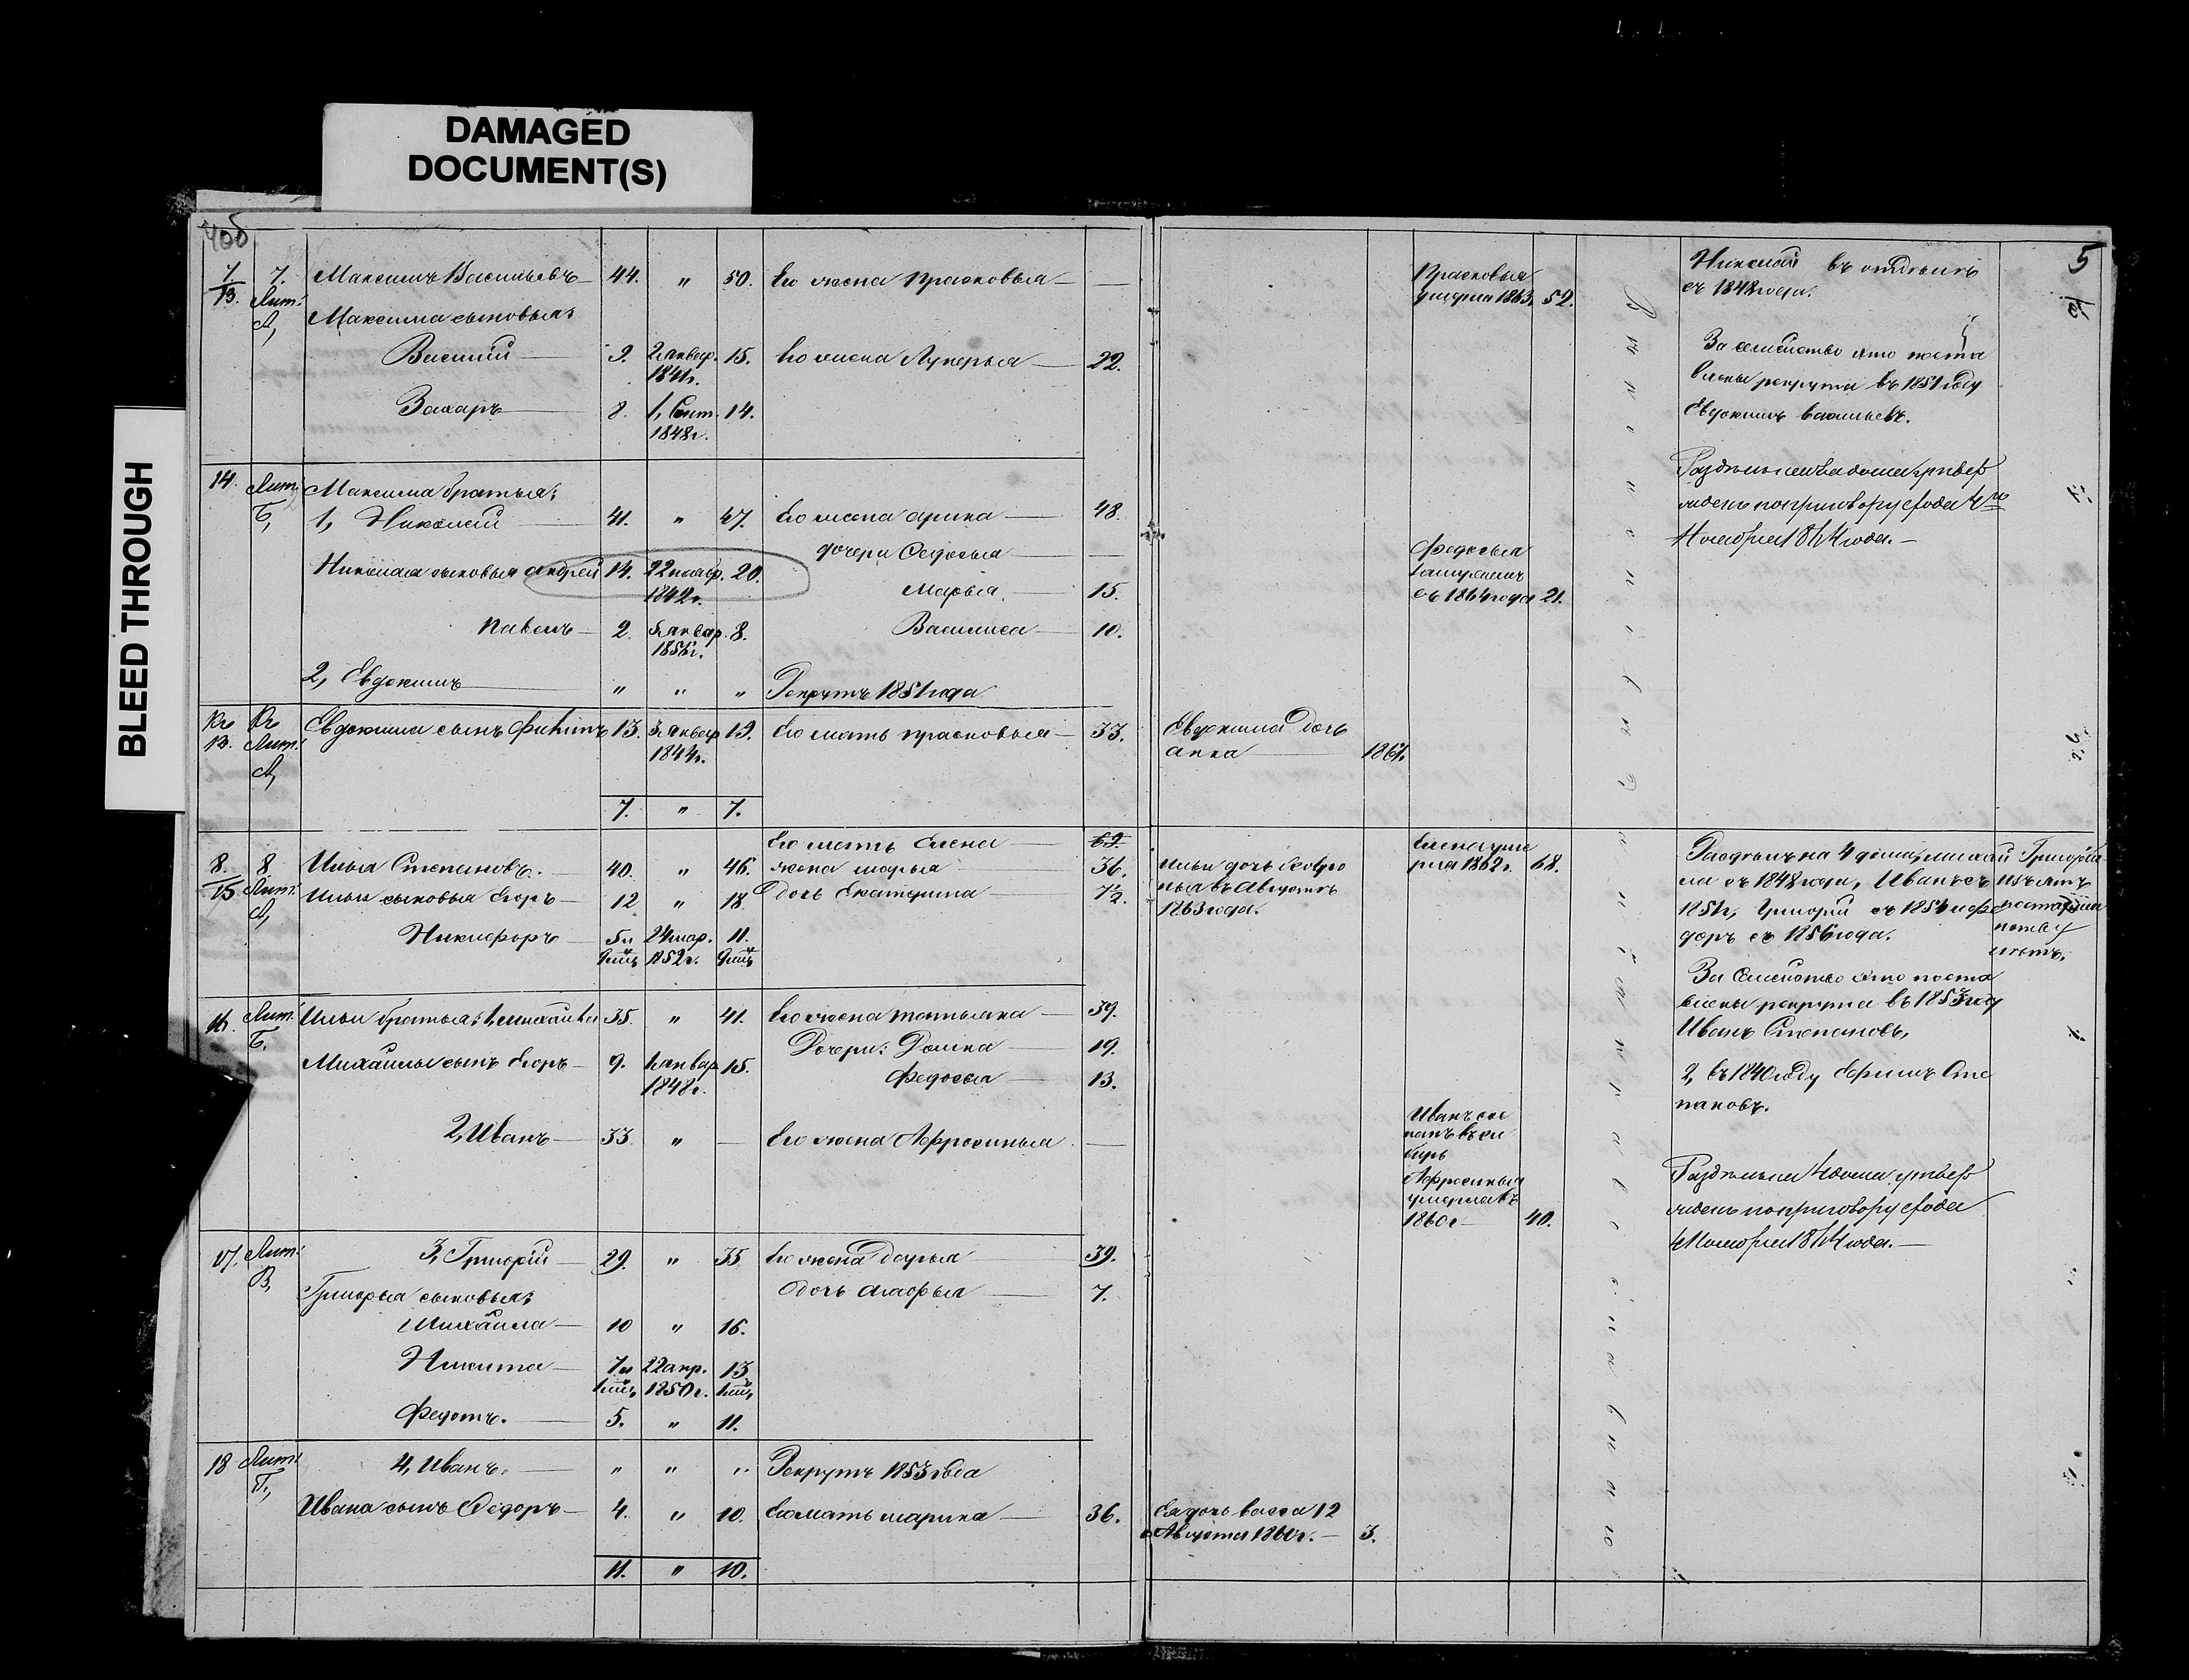 DAMAGED
DOCUMENT(S)
BLEED THROUGH
406
5
7/13. 7. Лит: А, Максимъ Васильевъ 44. " 50. Его жена Прасковья —
Максима сыновья:
Василій 9. 2 Январ. 1841г. 15. Его жена Лукерья 22.
Захаръ 8. 1, Сент. 1848г. 14.
14. Лит: Б, Максима братья:
1, Николай 41. " 47. Его жена Арина 48.
дочери Федосья —
Николая сыновья Андрей 14. 22 1842г. 20.
Марья 15.
Павелъ 2. Январ. 1856г. 8. Василиса 10.
2, Евдокимъ " " " Рекрутъ 1851 года
Къ 13. Къ Лит: А, Евдокима сынъ 13. Январ 1844г. 19. Его мать Прасковья 33.
7. " 7.
Его мать Елена 69.
8/15 8 Лит: А, Илья Степановъ. 40. " 46. жена Марья 36.
Ильи сыновья Егоръ 12 " 18 Дочь Екатерина 7½.
Никифоръ 5и 9мцъ 24 мар. 1852г. 11. 9мцъ
16. Лит. Б. Ильи братья: 1, Михайла 35. " 41. Его жена Татьяна 39.
Дочери: Домна 19.
Михайлы сынъ Егоръ 9. Январ 1848г. 15.
Федосья 13.
2, Иванъ 33 " — Его жена Афросинья —
17. Лит: В, 3, Григорій 29. " 35 Его жена Дарья 39.
Григорья сыновья: Дочь 7.
Михайла 10 " 16.
Никита 7и 1мцъ 22 апр. 1850г. 13 1мцъ
Федотъ. 5. " 11.
18 Лит: Г, 4, Иванъ. " " " Рекрутъ 1853 года
Ивана сынъ Федоръ 4. " 10. Его мать Марина 36.
11. " 10.
Евдокима дочь
Анна 1861.
Ильи дочь
въ Августѣ
1863 года.
Ея дочь Васса 12
Августа 1860г. — 3.
Прасковья
умерла 1863. 52.
Федосья
замужемъ
съ 1864 года 21.
Елена уме
рла 1862г. 68.
Иванъ сос
ланъ въ си
бирь
Афросинья
умерла въ
1860г 40.
Николай въ отдѣлѣ
съ 1848 года.
За семейство это поста
влены рекрута въ 1851 году
Евдокимъ Васильевъ.
Раздѣлъ на два дома утвер
жденъ по приговору схода 4го
Ноября 1864 года. —
Раздѣлъ на 4 дома, Михай
ла съ 1848 года, Иванъ съ
1851г, Григорій съ 1854 и Фе
доръ съ 1856 года.
За семейство это поста
влены рекрута въ 1853 году
Иванъ Степановъ,
2, въ 1840 году Ефимъ Сте
пановъ.
Раздѣлъ на 4 дома утвер
жденъ по приговору схода
4 Ноября 1864 года. —